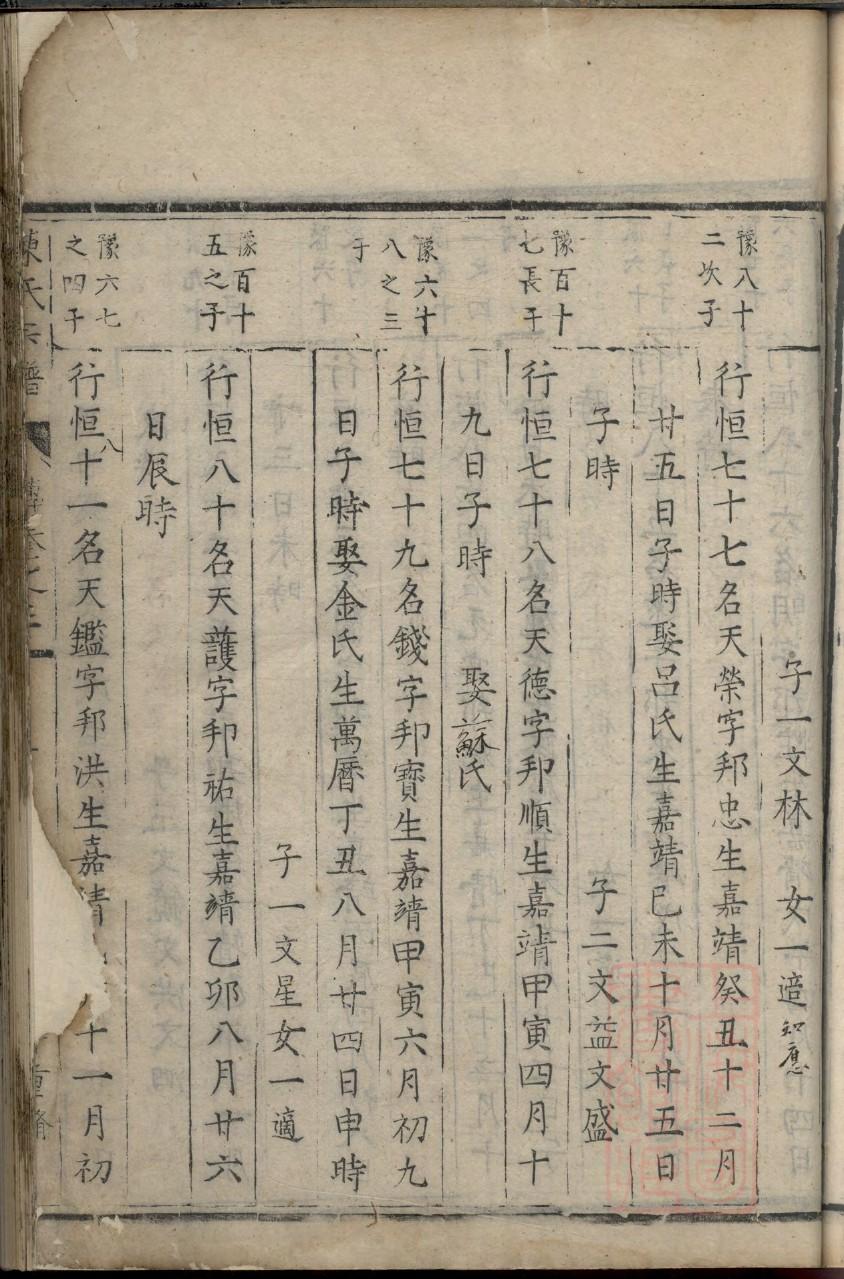 子一文林　女一適知應
豫八十
二次子
行恒七十七名天榮字邦忠生嘉靖癸丑十二月
廿五日子時娶呂氏生嘉靖已未十月廿五日
子時　子二文益文盛
豫百十
七長子
行恒七十八名天德字邦順生嘉靖甲寅四月十
九日子時　娶蘇氏
豫六十
八之三
子
行恒七十九名錢字邦寶生嘉靖甲寅六月初九
日子時娶金氏生萬曆丁丑八月廿四日申時
子一文星女一適
豫百十
五之子
行恒八十名天護字邦祐生嘉靖乙卯八月廿六
日辰時
豫六七
之四子
行恒八十一名天鑑字邦洪生嘉靖十一月初
陳氏宗譜
重脩